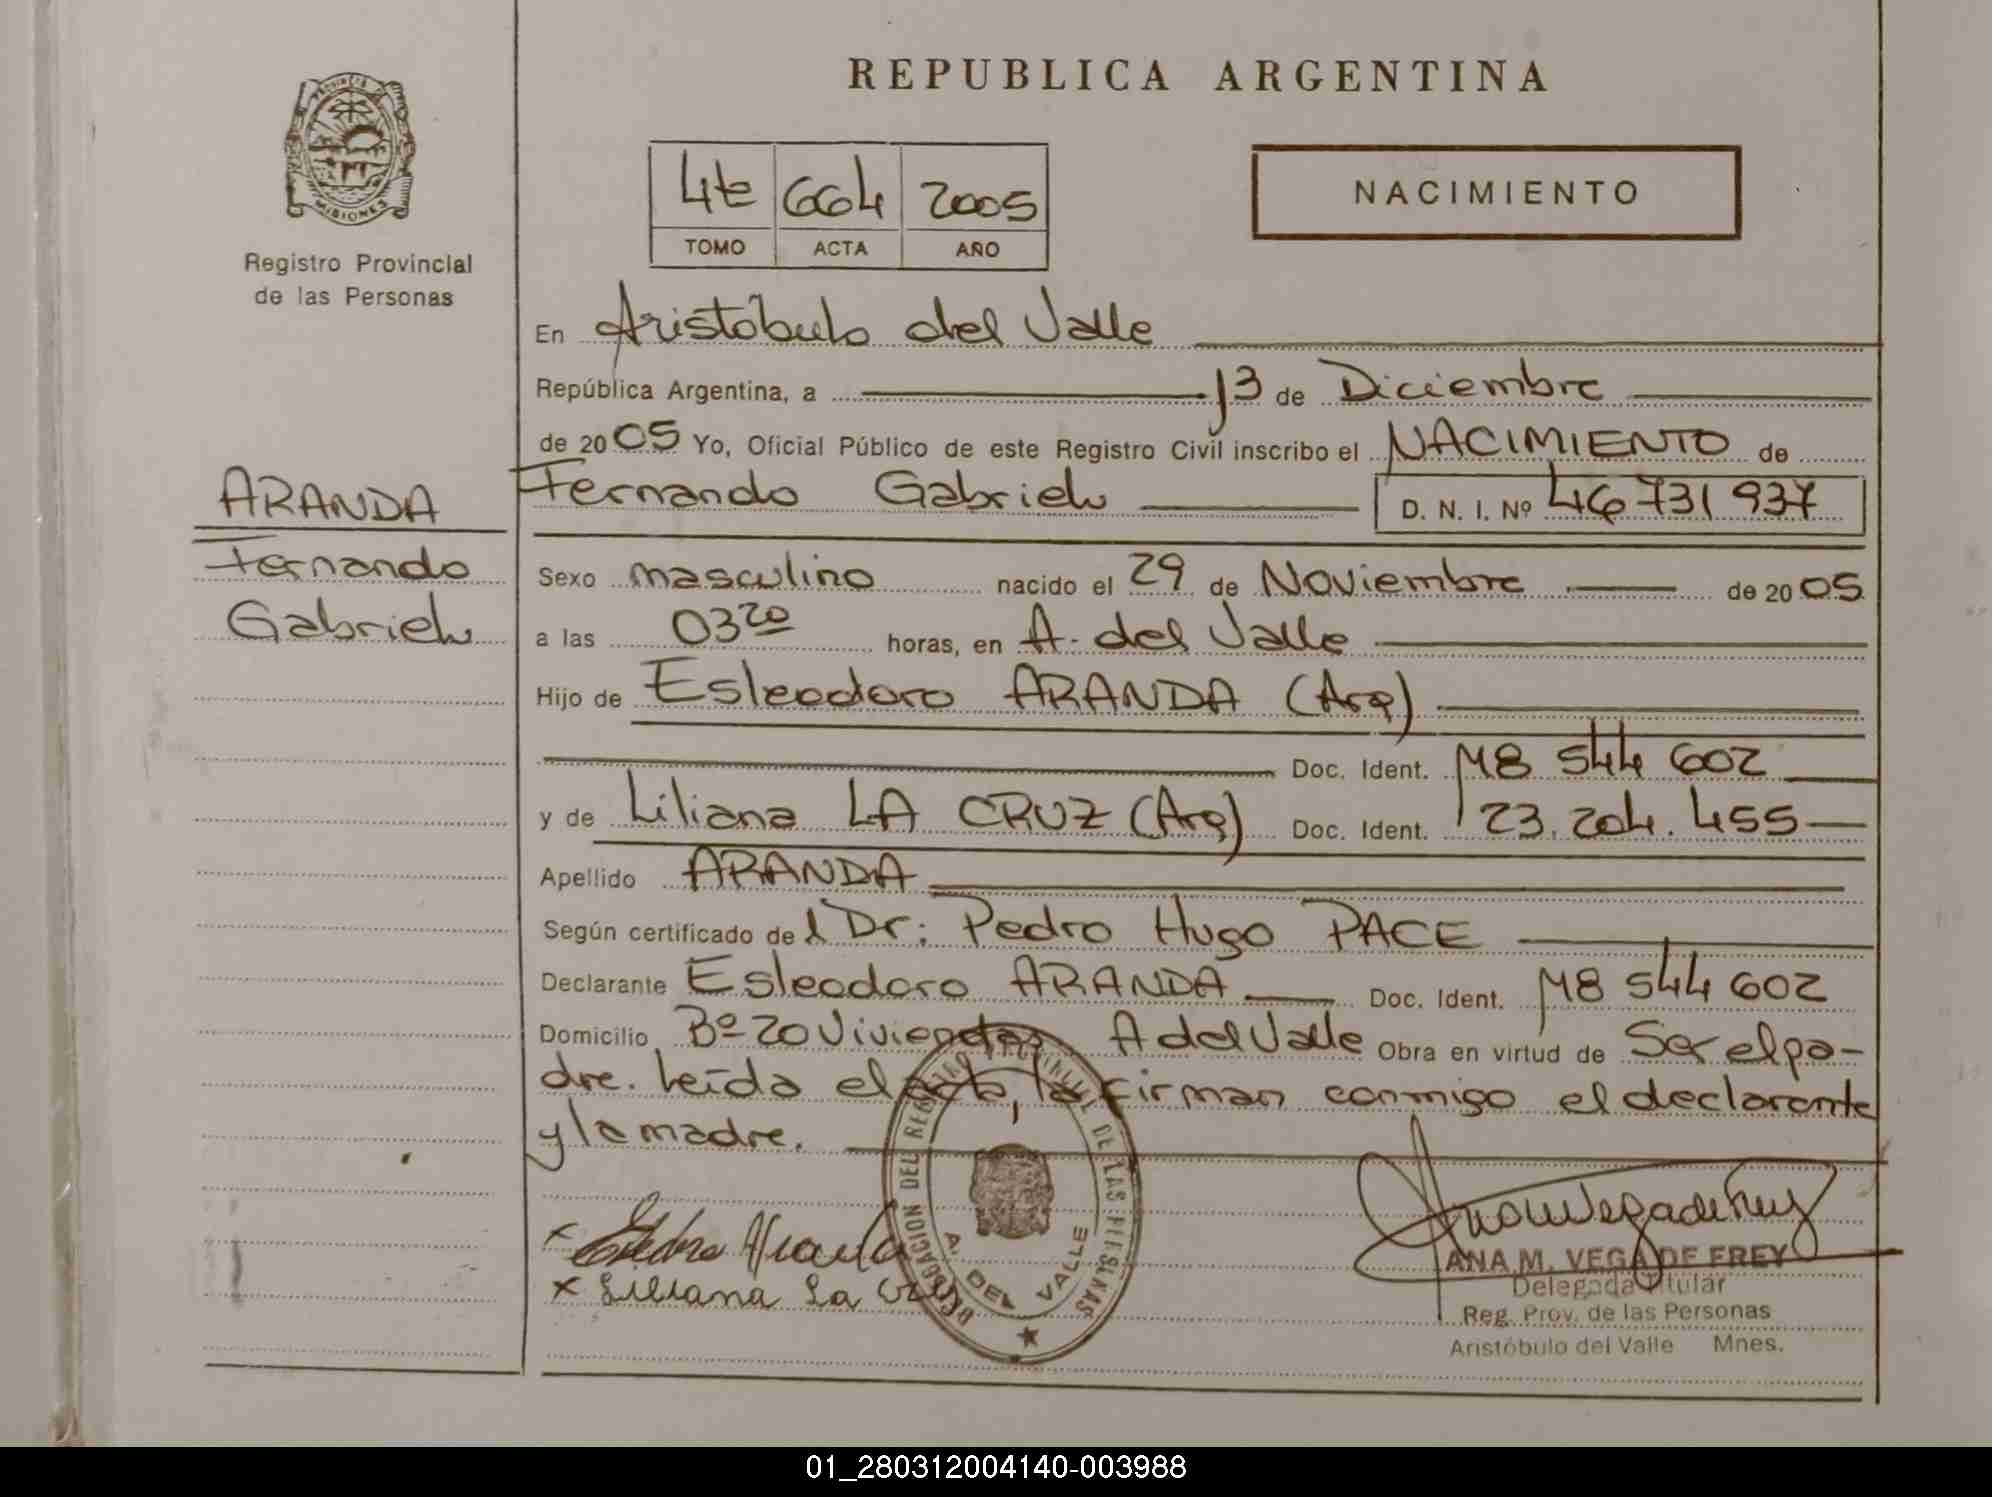 REPUBLICA ARGENTINA
PROVINCIA
MISIONES
Registro Provincial
de las Personas
4t 664 2005
TOMO ACTA AÑO
NACIMIENTO
En Aristóbulo del Valle
República Argentina, a 13 de Diciembre
de 2005 Yo, Oficial Público de este Registro Civil inscribo el NACIMIENTO de
Fernando Gabriel D. N. I. Nº 46 731 937
ARANDA
Fernando
Gabriel
Sexo masculino nacido el 29 de Noviembre de 2005
a las 03 20 horas, en A. del Valle
Hijo de Esleodoro ARANDA (Arg)
Doc. Ident. M8 544 602
y de Liliana LA CRUZ (Arg) Doc. Ident. 23.204.455
Apellido ARANDA
Según certificado del Dr: Pedro Hugo PACE
Declarante Esleodoro ARANDA Doc. Ident. M8 544 602
Domicilio Bº 20 Viviendas A del Valle Obra en virtud de Ser el pa-
dre. Leída el acta, la firman conmigo el declarante
y la madre.
DELEGACION DEL REGISTRO PROVINCIAL DE LAS PERSONAS
A. DEL VALLE
x Aranda
x Liliana La Cruz
Ana M Vega de Frey
ANA M. VEGA DE FREY
Delegada Titular
Reg. Prov. de las Personas
Aristóbulo del Valle Mnes.
01_280312004140-003988